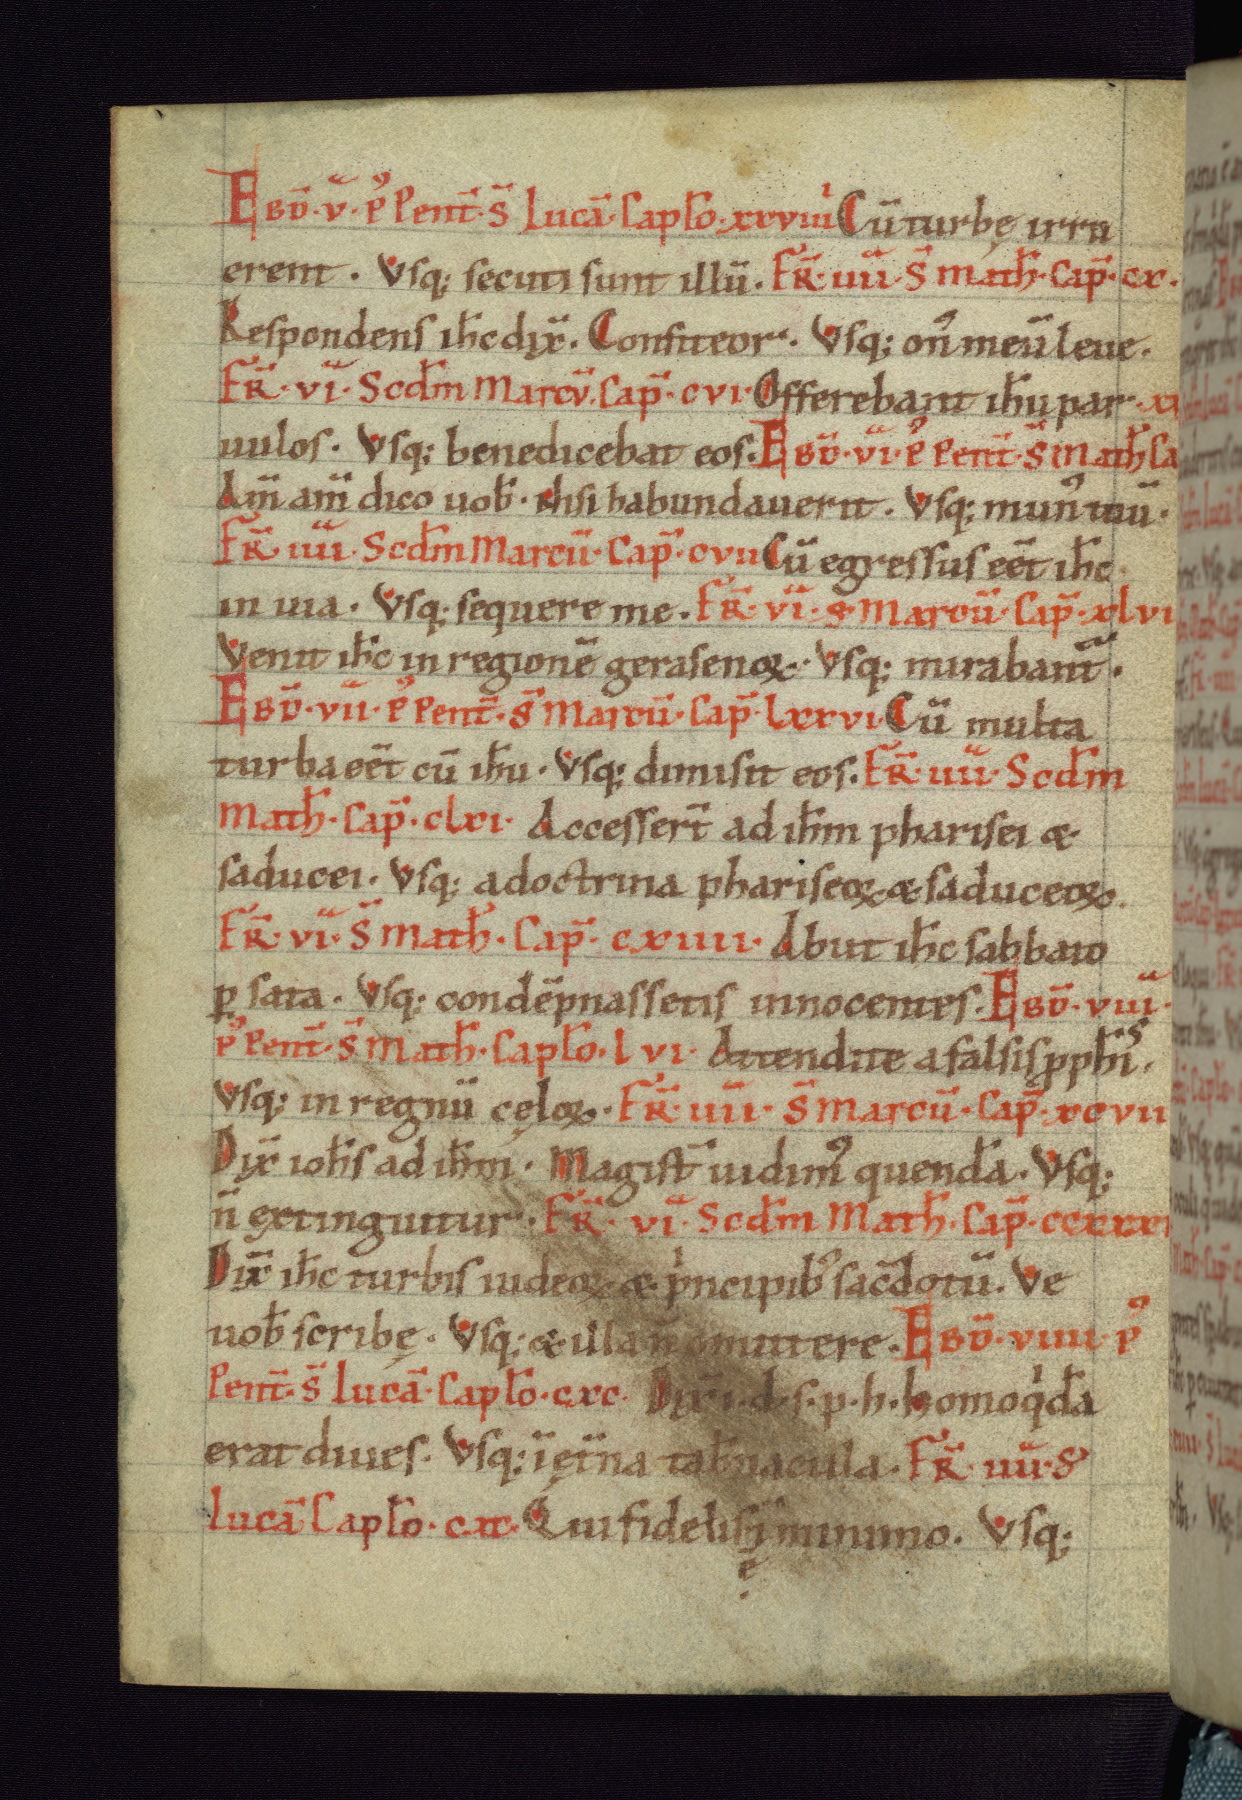 EBD̄·v̄·P᷒ Pent̄·S̄ Lucā·Caplo·xxviiii Cū turbę irru
erent. Vsq; secuti sunt illū. FR̄·iiii·S̄ Math·Cap̄·cx.
Respondens ih̄c dix̄. Confiteor. Vsq; on᷒ meū leue.
FR̄·vī·Scdm Marcū. Cap̄·cvi· Offerebant ih̄u par
uulos. Vsq; benedicebat eos. EBD̄·vī·P᷒ Pent̄·S̄ Math Ca
Am̄ am̄ dico uob̄· nisi habundauerit. Vsq; mun᷒ tuū.
FR̄·iiii·Scdm Marcū·Cap̄·cvii Cū egressus eēt ih̄c
in uia. Vsq; sequere me. FR̄·vī·S̄ Marcū·Cap̄·xlvi
Venit ih̄c in regionē gerasenoꝝ. Vsq; mirabant̄.
EBD̄·vīi·P᷒ Pent̄·S̄ Marcū·Cap̄·lxxvi· Cū multa
turba eēt cū ih̄u. Vsq; dimisit eos. FR̄·iiii·Scdm
Math·Cap̄·clxi· Accessert̄ ad ih̄m pharisei &
saducei. Vsq; a doctrina phariseoꝝ & saduceoꝝ.
FR̄·vī·S̄ Math·Cap̄·cxiiii· Abiit ih̄c sabbato
ꝑ sata. Vsq; condēpnassetis innocentes. EBD̄·viii·
P᷒ Pent̄·S̄ Math·Caplo·lvi· Attendite a falsis pph̄is.
Vsq; in regnū cęloꝝ. FR̄·iiii·S̄ Marcū·Cap̄·xcvii
Dix̄ ioh̄s ad ih̄m. Magist̄ uidim᷒ quenda. Vsq;
n̄ extinguitur. FR̄·vī·Scdm Math·Cap̄·ccxxxi
Dix̄ ih̄c turbis iudeoꝝ & pⁱncipib᷒ sac̄dotū. Ve
uob̄ scribę. Vsq; & illa n̄ omittere. EBD̄·viiii·P᷒
Pent̄·S̄ Lucā·Caplo·cxc· Dix̄·i·d·s·p·h·homo qⁱda
erat diues. Vsq; ī ęt̄na tab̄nacula. FR̄·iiii·S̄
Lucā Caplo·cxc· Qui fidelis ī minimo. Vsq;
ę